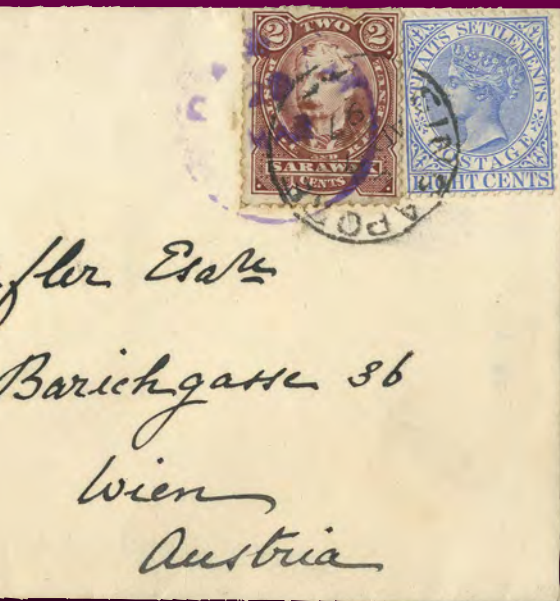 2 TWO 2
SARAWAK
CENTS
STRAITS SETTLEMENTS
POSTAGE
EIGHT CENTS
Esqre
Barichgasse 36
Wien
Austria